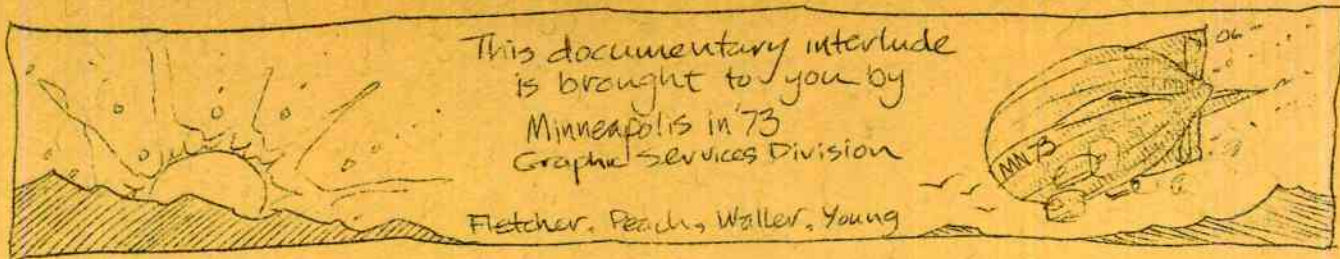 This documentary interlude
is brought to you by
Minneapolis in '73
Graphic Services Division
Fletcher, Peach, Waller, Young
MN 73